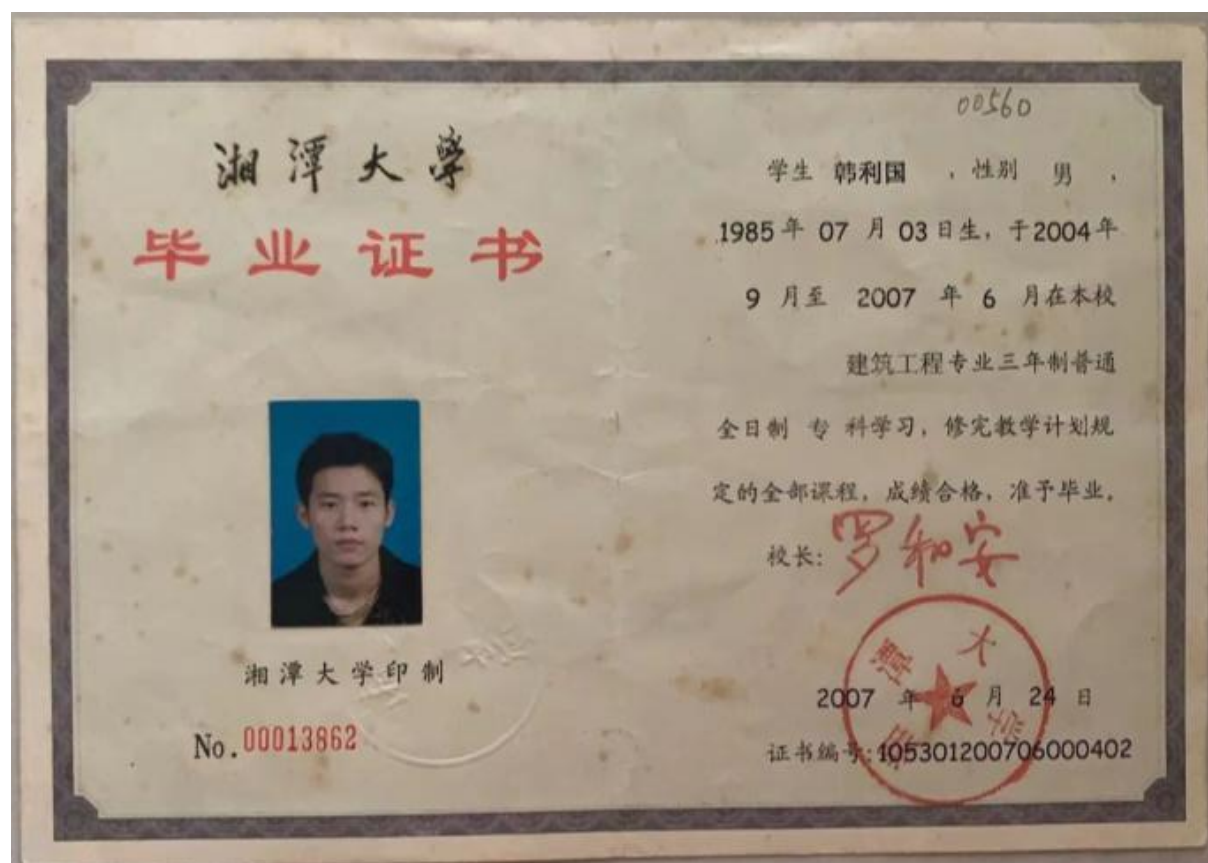 湘潭大學
毕业证书
湘潭大学印制
No.00013862
00560
学生 韩利国 ，性别 男 ，
1985年 07 月 03日生，于2004年
9 月至 2007 年 6 月在本校
建筑工程专业三年制普通
全日制 专 科学习，修完教学计划规
定的全部课程，成绩合格，准予毕业。
校长：罗和安
湘潭大学
2007 年 6 月 24 日
证书编号：105301200706000402